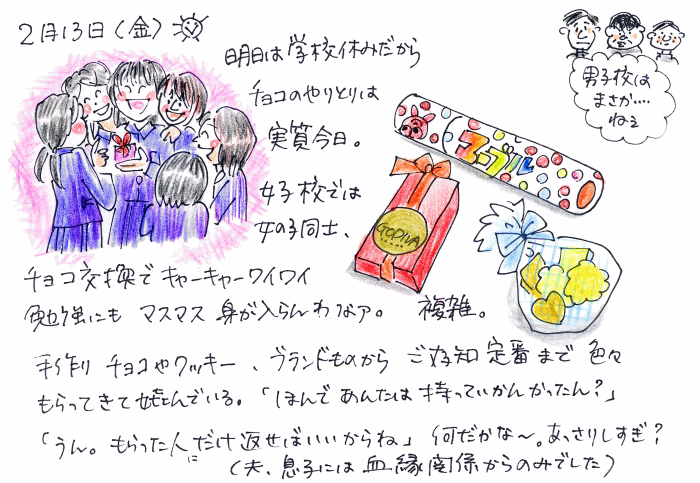 2月13日(金)
明日は学校休みだから
チョコのやりとりは
実質今日。
女子校では
女の子同士、
チョコ交換でキャーキャーワイワイ
勉強にもマスマス身が入らんわなァ。
複雑。
男子校は
まさか‥‥
ねぇ
マーブル
GODIVA
手作りチョコやクッキー、ブランドものからご存知定番まで色々
もらってきて喜んでいる。「ほんであんたは持っていかんかったん?」
「うん。もらった人にだけ返せばいいからね」何だかな〜。あっさりしすぎ?
(夫、息子には血縁関係からのみでした)